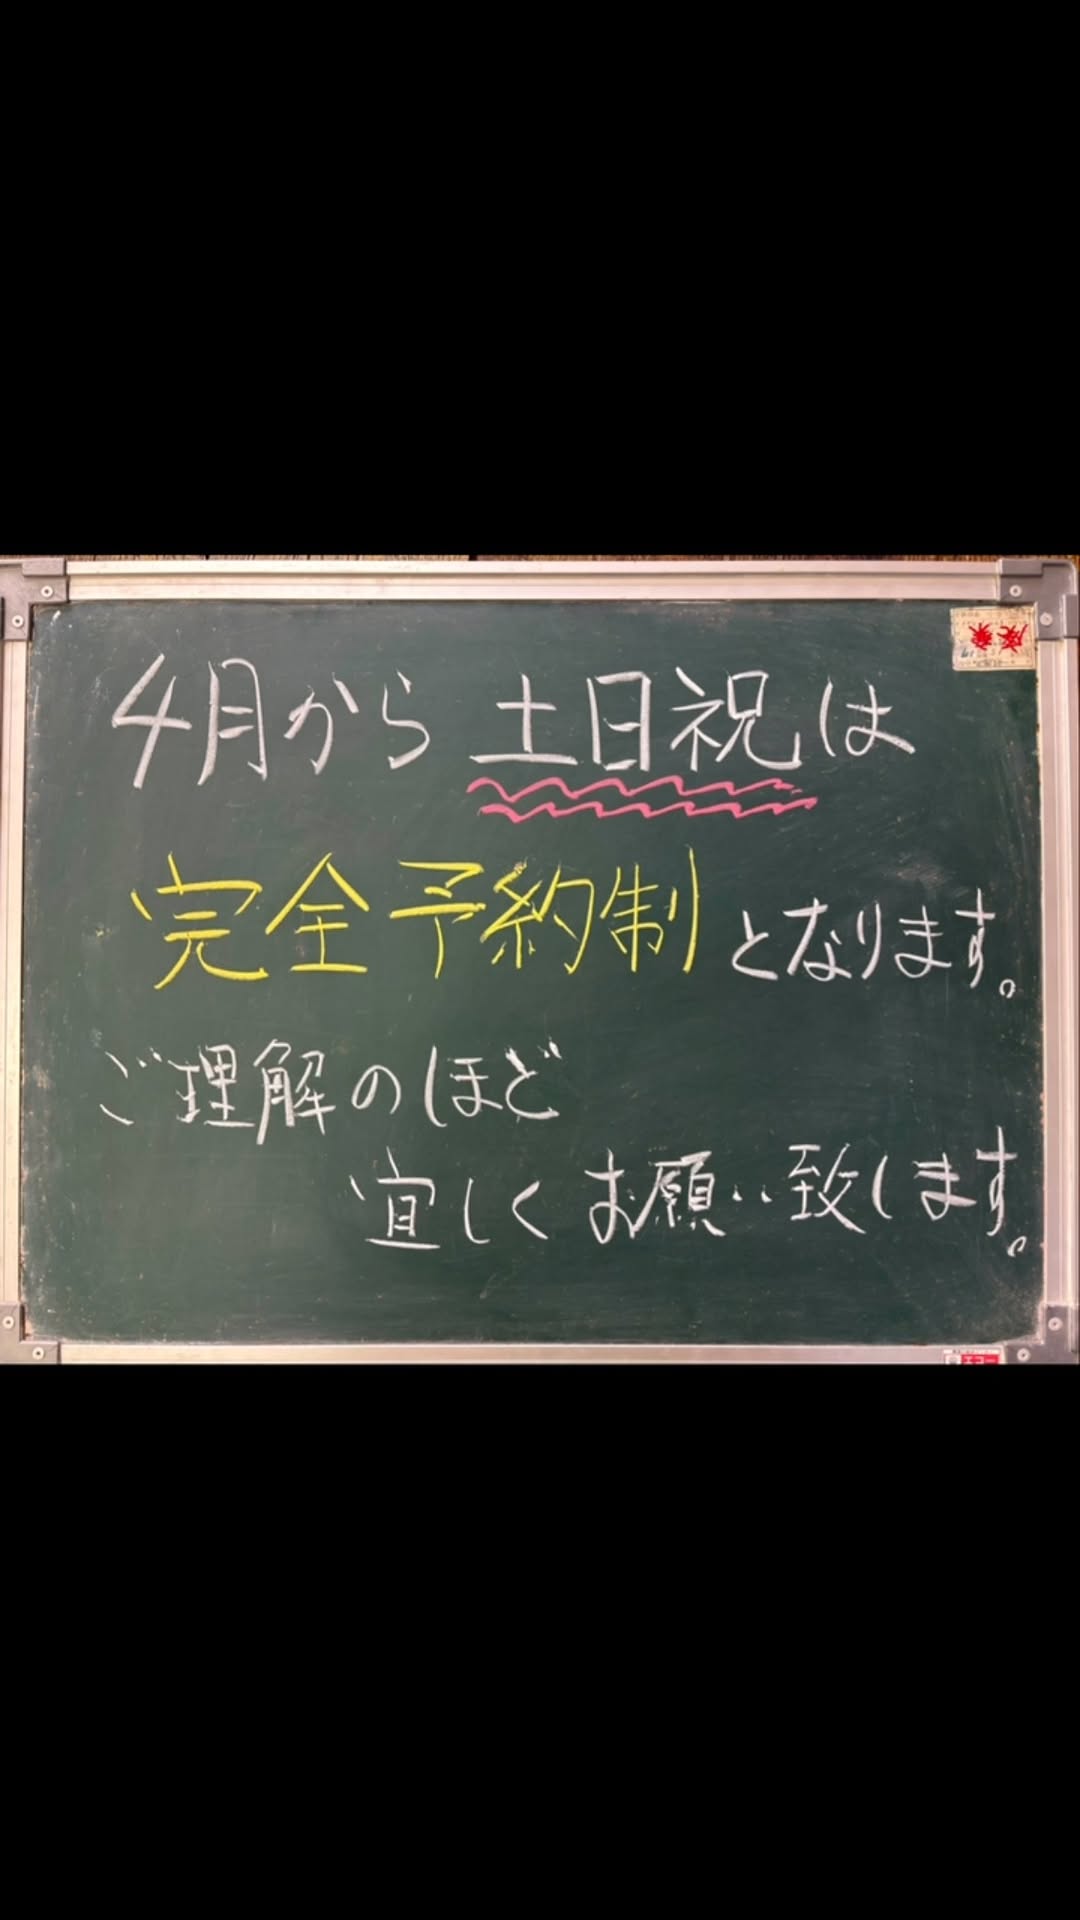 4月から 土日祝は
完全予約制となります。
ご理解のほど
宜しくお願い致します。
廃棄